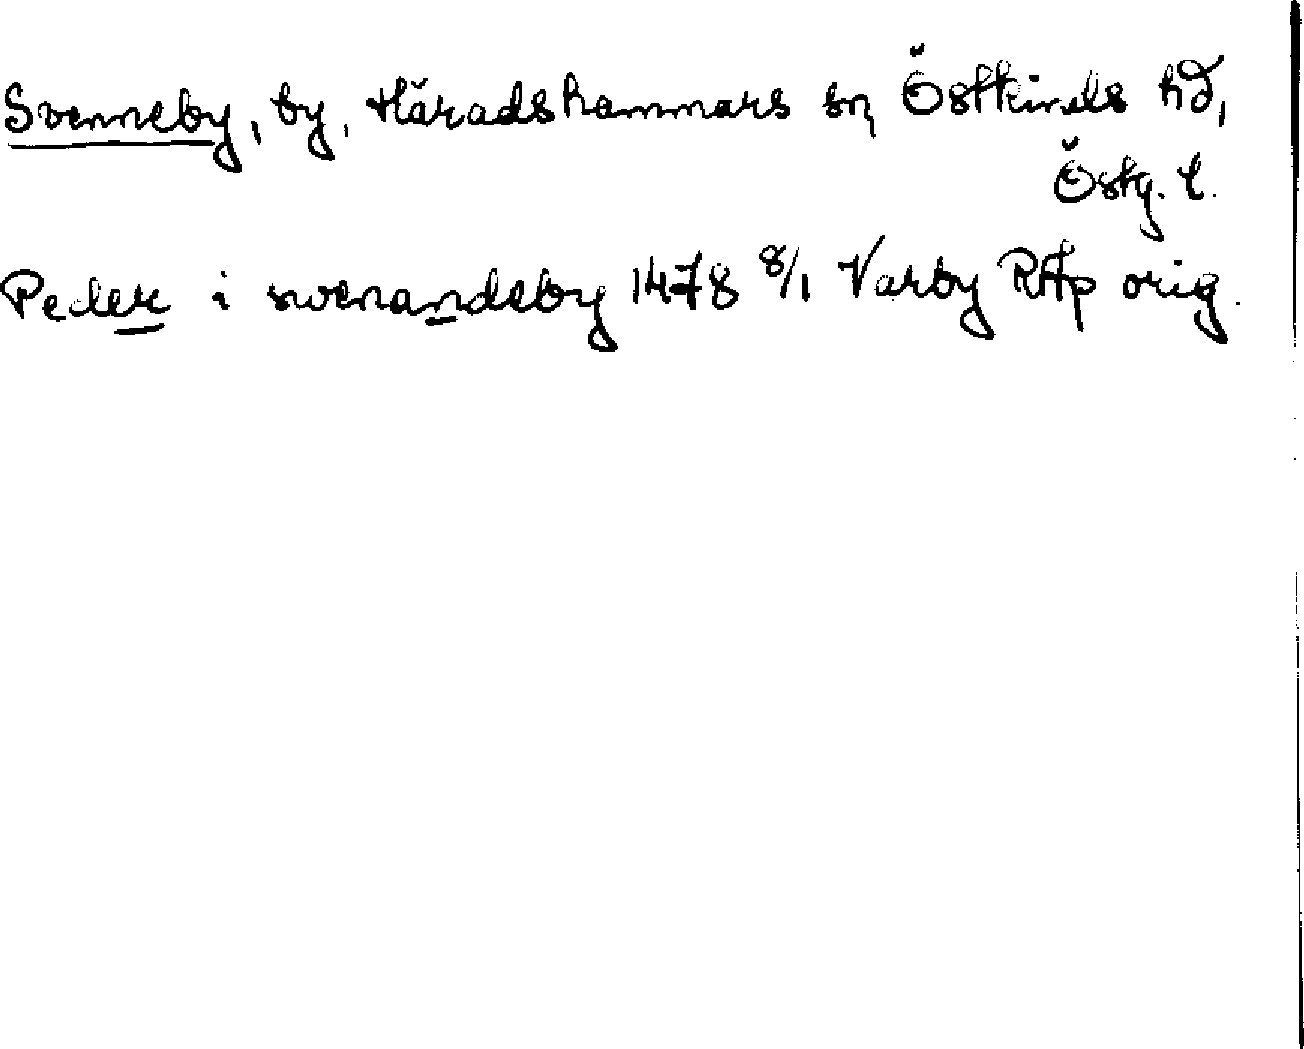 Svenneby, by, Häradshammars sn Östkinds hd,
Östg. l.
Peder i swenandeby 1478 8/1 Varby RAp orig.